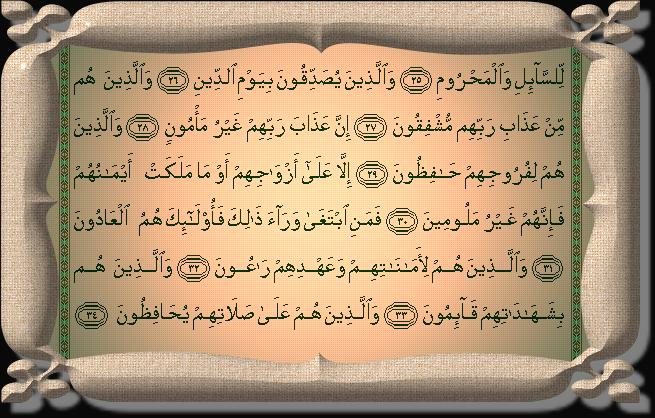 لِّلسَّآئِلِ وَٱلْمَحْرُومِ ٢٥ وَٱلَّذِينَ يُصَدِّقُونَ بِيَوْمِ ٱلدِّينِ ٢٦ وَٱلَّذِينَ هُم
مِّنْ عَذَابِ رَبِّهِم مُّشْفِقُونَ ٢٧ إِنَّ عَذَابَ رَبِّهِمْ غَيْرُ مَأْمُونٍ ٢٨ وَٱلَّذِينَ
هُمْ لِفُرُوجِهِمْ حَـٰفِظُونَ ٢٩ إِلَّا عَلَىٰٓ أَزْوَٰجِهِمْ أَوْ مَا مَلَكَتْ أَيْمَـٰنُهُمْ
فَإِنَّهُمْ غَيْرُ مَلُومِينَ ٣٠ فَمَنِ ٱبْتَغَىٰ وَرَآءَ ذَٰلِكَ فَأُو۟لَـٰٓئِكَ هُمُ ٱلْعَادُونَ
٣١ وَٱلَّـذِينَ هُـمْ لِأَمَـٰنَـٰتِهِـمْ وَعَهْـدِهِمْ رَٰعُـونَ ٣٢ وَٱلَّـذِينَ هُـم
بِشَـهَـٰدَٰتِهِمْ قَآئِمُونَ ٣٣ وَٱلَّذِينَ هُمْ عَلَىٰ صَلَاتِهِمْ يُحَافِظُونَ ٣٤